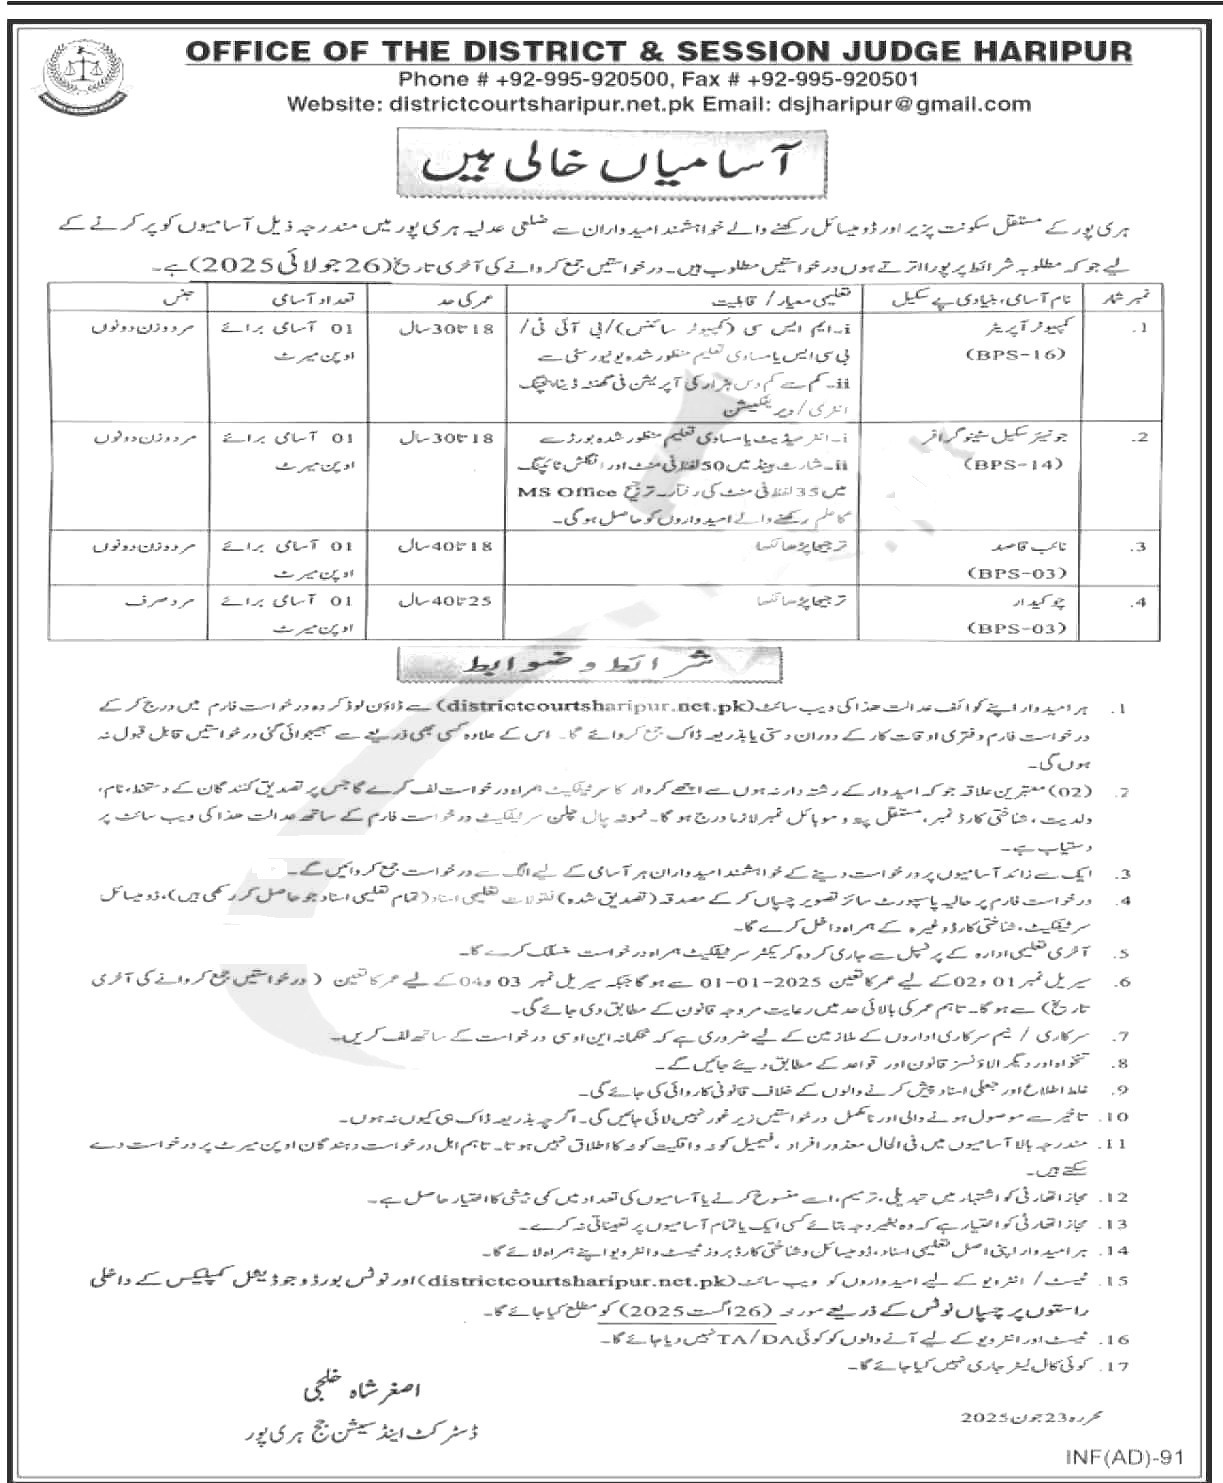 OFFICE OF THE DISTRICT & SESSION JUDGE HARIPUR
Phone # +92-995-920500, Fax # +92-995-920501
Website: districtcourtsharipur.net.pk Email: dsjharipur@gmail.com
آسامیاں خالی ہیں
ہری پور کے مستقل سکونت پزیر اور ڈومیسائل رکھنے والے خواہشمند امیدواران سے ضلعی عدلیہ ہری پور میں مندرجہ ذیل آسامیوں کو پر کرنے کے
لیے جو کہ مطلوبہ شرائط پر پورا اترتے ہوں درخواستیں مطلوب ہیں۔ درخواستیں جمع کروانے کی آخری تاریخ (26 جولائی 2025) ہے۔
نمبر شمار نام آسامی، بنیادی پے سکیل تعلیمی معیار/ قابلیت عمر کی حد تعداد آسامی جنس
1. کمپیوٹر آپریٹر i۔ ایم ایس سی (کمپیوٹر سائنس)/بی آئی ٹی/ 18 تا 30 سال 01 آسامی برائے مرد و زن دونوں
(BPS-16) بی سی ایس یا مساوی تعلیم منظور شدہ یونیورسٹی سے اوپن میرٹ
ii۔ کم سے کم دس ہزار کی آپریشن فی گھنٹہ ڈیٹا پنچنگ
انٹری/ویریفکیشن
2. جونیئر سکیل سٹینوگرافر i۔ انٹرمیڈیٹ یا مساوی تعلیم منظور شدہ بورڈ سے 18 تا 30 سال 01 آسامی برائے مرد و زن دونوں
(BPS-14) ii۔ شارٹ ہینڈ میں 50 لفظ فی منٹ اور انگلش ٹائپنگ اوپن میرٹ
میں 35 لفظ فی منٹ کی رفتار۔ ترجیح MS Office
کا علم رکھنے والے امیدواروں کو حاصل ہوگی۔
3. نائب قاصد ترجیحا پڑھا لکھا 18 تا 40 سال 01 آسامی برائے مرد و زن دونوں
(BPS-03) اوپن میرٹ
4. چوکیدار ترجیحا پڑھا لکھا 25 تا 40 سال 01 آسامی برائے مرد صرف
(BPS-03) اوپن میرٹ
شرائط و ضوابط
1. ہر امیدوار اپنے کوائف عدالت ھذا کی ویب سائٹ (districtcourtsharipur.net.pk) سے ڈاؤن لوڈ کردہ درخواست فارم میں درج کر کے
درخواست فارم دفتری اوقات کار کے دوران دستی یا بذریعہ ڈاک جمع کروائے گا۔ اس کے علاوہ کسی بھی ذریعے سے بھیجوائی گئی درخواستیں قابل قبول نہ
ہوں گی۔
2. (02) معتبرین علاقہ جو کہ امیدوار کے رشتہ دار نہ ہوں سے اچھے کردار کا سرٹیفکیٹ ہمراہ درخواست لف کرے گا جس پر تصدیق کنندگان کے دستخط، نام،
ولدیت، شناختی کارڈ نمبر، مستقل پتہ و موبائل نمبر لازما درج ہوگا۔ نمونہ چال چلن سرٹیفکیٹ درخواست فارم کے ساتھ عدالت ھذا کی ویب سائٹ پر
دستیاب ہے۔
3. ایک سے زائد آسامیوں پر درخواست دینے کے خواہشمند امیدواران ہر آسامی کے لیے الگ سے درخواست جمع کروائیں گے۔
4. درخواست فارم پر حالیہ پاسپورٹ سائز تصویر چسپاں کر کے مصدقہ (تصدیق شدہ) نقولات تعلیمی اسناد (تمام تعلیمی اسناد جو حاصل کر رکھی ہیں)، ڈومیسائل
سرٹیفکیٹ، شناختی کارڈ وغیرہ کے ہمراہ داخل کرے گا۔
5. آخری تعلیمی ادارہ کے پرنسپل سے جاری کردہ کریکٹر سرٹیفکیٹ ہمراہ درخواست منسلک کرے گا۔
6. سیریل نمبر 01 و 02 کے لیے عمر کا تعین 01-01-2025 سے ہوگا جبکہ سیریل نمبر 03 و 04 کے لیے عمر کا تعین (درخواستیں جمع کروانے کی آخری
تاریخ) سے ہوگا۔ تاہم عمر کی بالائی حد میں رعایت مروجہ قانون کے مطابق دی جائے گی۔
7. سرکاری / نیم سرکاری اداروں کے ملازمین کے لیے ضروری ہے کہ محکمانہ این او سی درخواست کے ساتھ لف کریں۔
8. تنخواہ اور دیگر الاؤنسز قانون اور قواعد کے مطابق دیئے جائیں گے۔
9. غلط اطلاع اور جعلی اسناد پیش کرنے والوں کے خلاف قانونی کاروائی کی جائے گی۔
10. تاخیر سے موصول ہونے والی اور نامکمل درخواستیں زیر غور نہیں لائی جائیں گی۔ اگرچہ بذریعہ ڈاک ہی کیوں نہ ہوں۔
11. مندرجہ بالا آسامیوں میں فی الحال معذور افراد، فیمیل کوٹہ و اقلیت کوٹہ کا اطلاق نہیں ہوتا۔ تاہم اہل درخواست دہندگان اوپن میرٹ پر درخواست دے
سکتے ہیں۔
12. مجاز اتھارٹی کو اشتہار میں تبدیلی، ترمیم، اسے منسوخ کرنے یا آسامیوں کی تعداد میں کمی بیشی کا اختیار حاصل ہے۔
13. مجاز اتھارٹی کو اختیار ہے کہ وہ بغیر وجہ بتائے کسی ایک یا تمام آسامیوں پر تعیناتی نہ کرے۔
14. ہر امیدوار اپنی اصل تعلیمی اسناد، ڈومیسائل و شناختی کارڈ بروز ٹیسٹ و انٹرویو اپنے ہمراہ لائے گا۔
15. ٹیسٹ/ انٹرویو کے لیے امیدواروں کو ویب سائٹ (districtcourtsharipur.net.pk) اور نوٹس بورڈ و جوڈیشل کمپلیکس کے داخلی
راستوں پر چسپاں نوٹس کے ذریعے مورخہ (26 اگست 2025) کو مطلع کیا جائے گا۔
16. ٹیسٹ اور انٹرویو کے لیے آنے والوں کو کوئی TA/DA نہیں دیا جائے گا۔
17. کوئی کال لیٹر جاری نہیں کیا جائے گا۔
اصغر شاہ خلجی
ڈسٹرکٹ اینڈ سیشن جج ہری پور
محررہ 23 جون 2025
INF(AD)-91